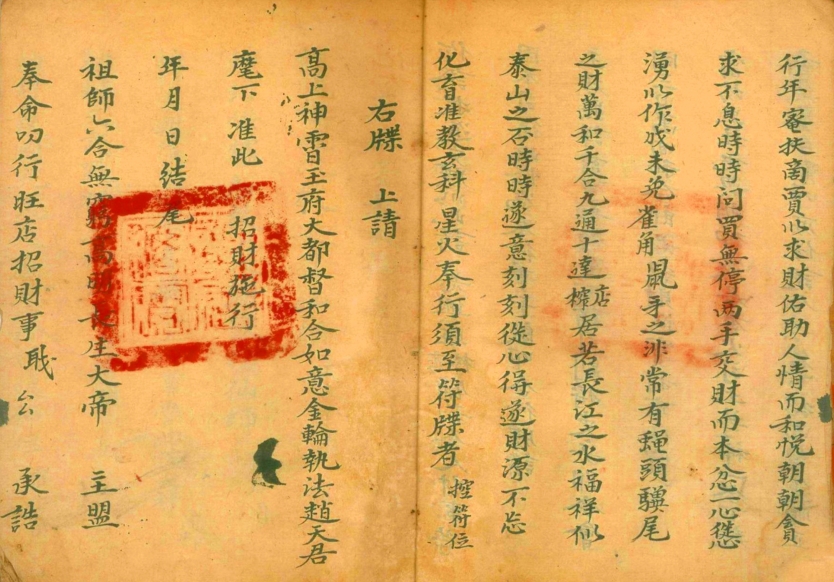 行年密扶商賈以求財佑助人情而和悅朝朝貪
求不息時時问買無停两手交財而本忿一心懲
湧以作成未免雀角鼠牙之非常有蝇頭驥尾
之財萬和千合九通十達榨店居若長江之水福祥似
泰山之石時時遂意刻刻從心得遂財源不忘
化育准教玄科星火奉行須至符牒者 控符位
右牒 上請
高上神霄玉府大都督和合如意金輪執法趙天君
麾下准此 招財施行
年月日結尾
祖師六合無窮高明大帝 主盟
奉命叨行旺店招財事戢厶 承誥